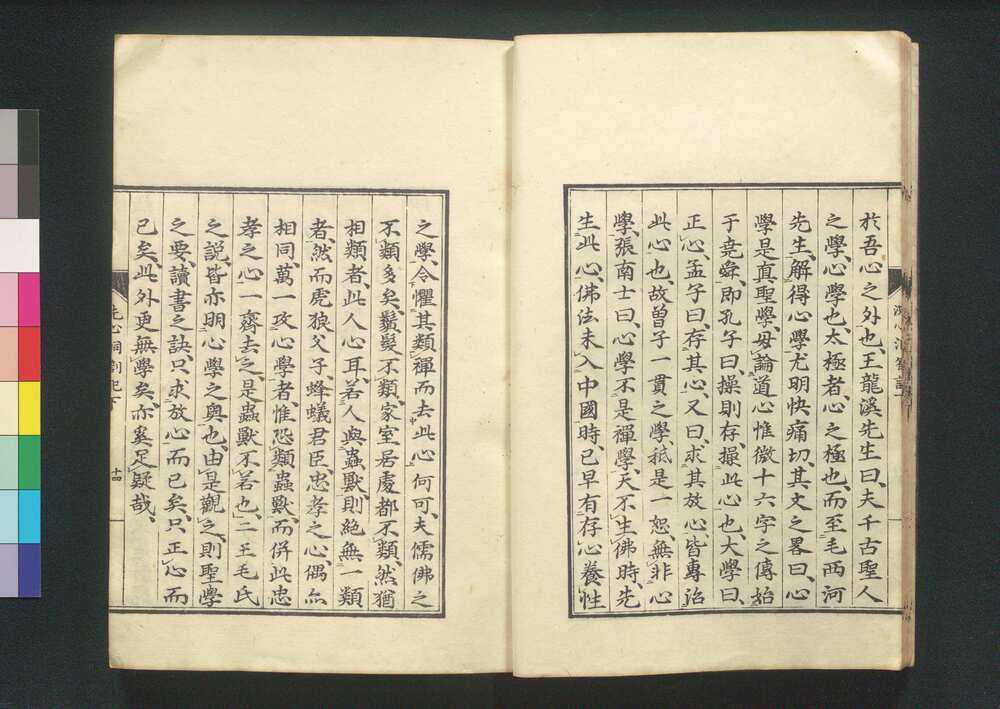 於吾心之外也、王龍溪先生曰、夫千古聖人
之學、心學也、太極者、心之極也、而至毛西河
先生、解得心學尤明快痛切、其文之畧曰、心
學是眞聖學、毋論道心惟微十六字之傳始
于堯舜、卽孔子曰、操則存、操此心也、大學曰、
正心、孟子曰、存其心、又曰、求其放心、皆專治
此心也、故曾子一貫之學、秪是一恕、無非心
學、張南士曰、心學不是禪學、天不生佛時、先
生此心、佛法未入中國時、已早有存心養性
之學、今懼其類禪而去此心何可、夫儒佛之
不類多矣、鬚髮不類、家室居處都不類、然猶
相類者、此人心耳、若人與蟲獸、則絶無一類
者、然而虎狼父子、蜂蟻君臣、忠孝之心、偶亦
相同、萬一攻心學者、惟恐類蟲獸、而倂此忠
孝之心一齊去之、是蟲獸不若也、二王毛氏
之說、皆亦明心學之奧也、由是觀之、則聖學
之要、讀書之訣、只求放心而已矣、只正心而
已矣、此外更無學矣、亦奚足疑哉、
洗心洞劄記下
十四